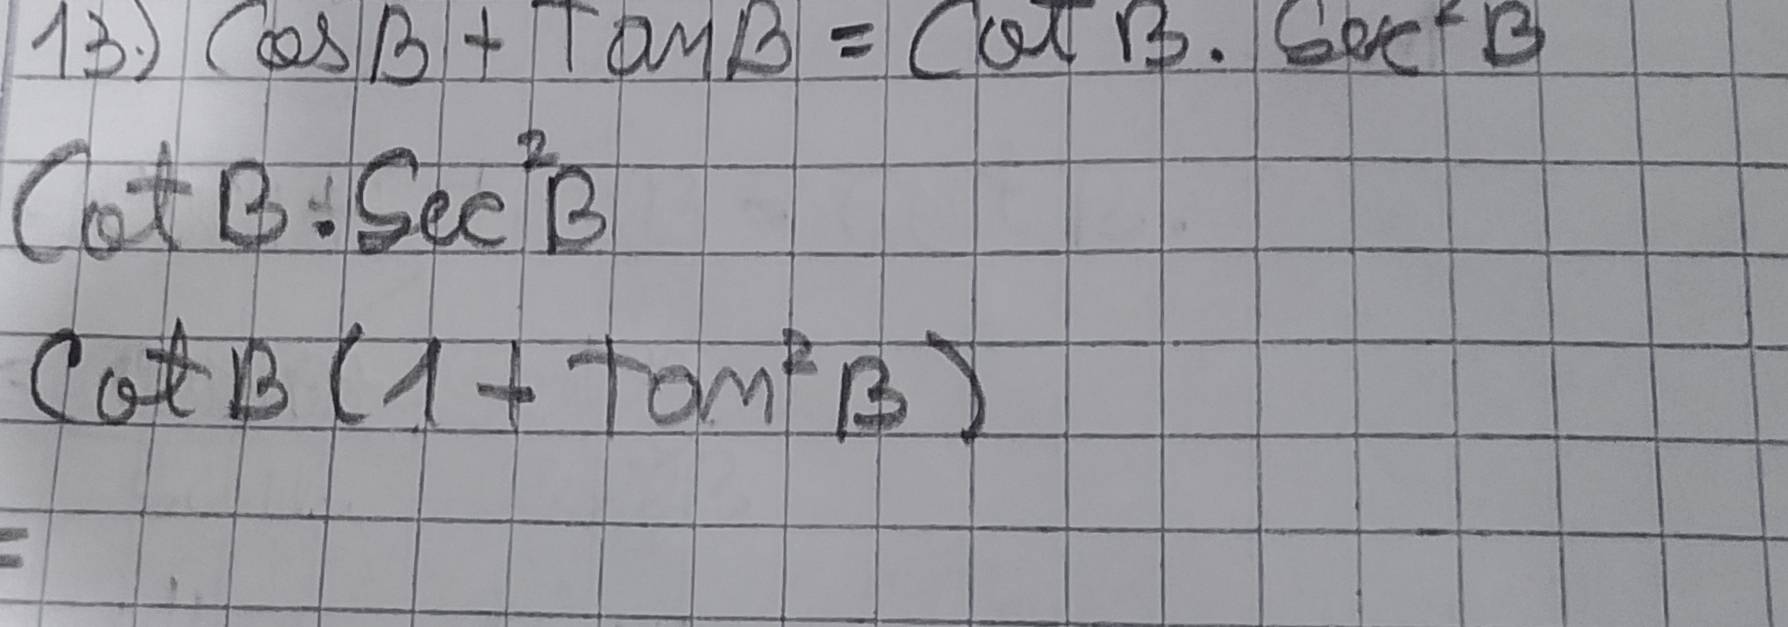 13.) Cos B + Tan B = Cot B. Sec² B
Cot B . Sec² B
Cot B (1 + Tan² B)
=